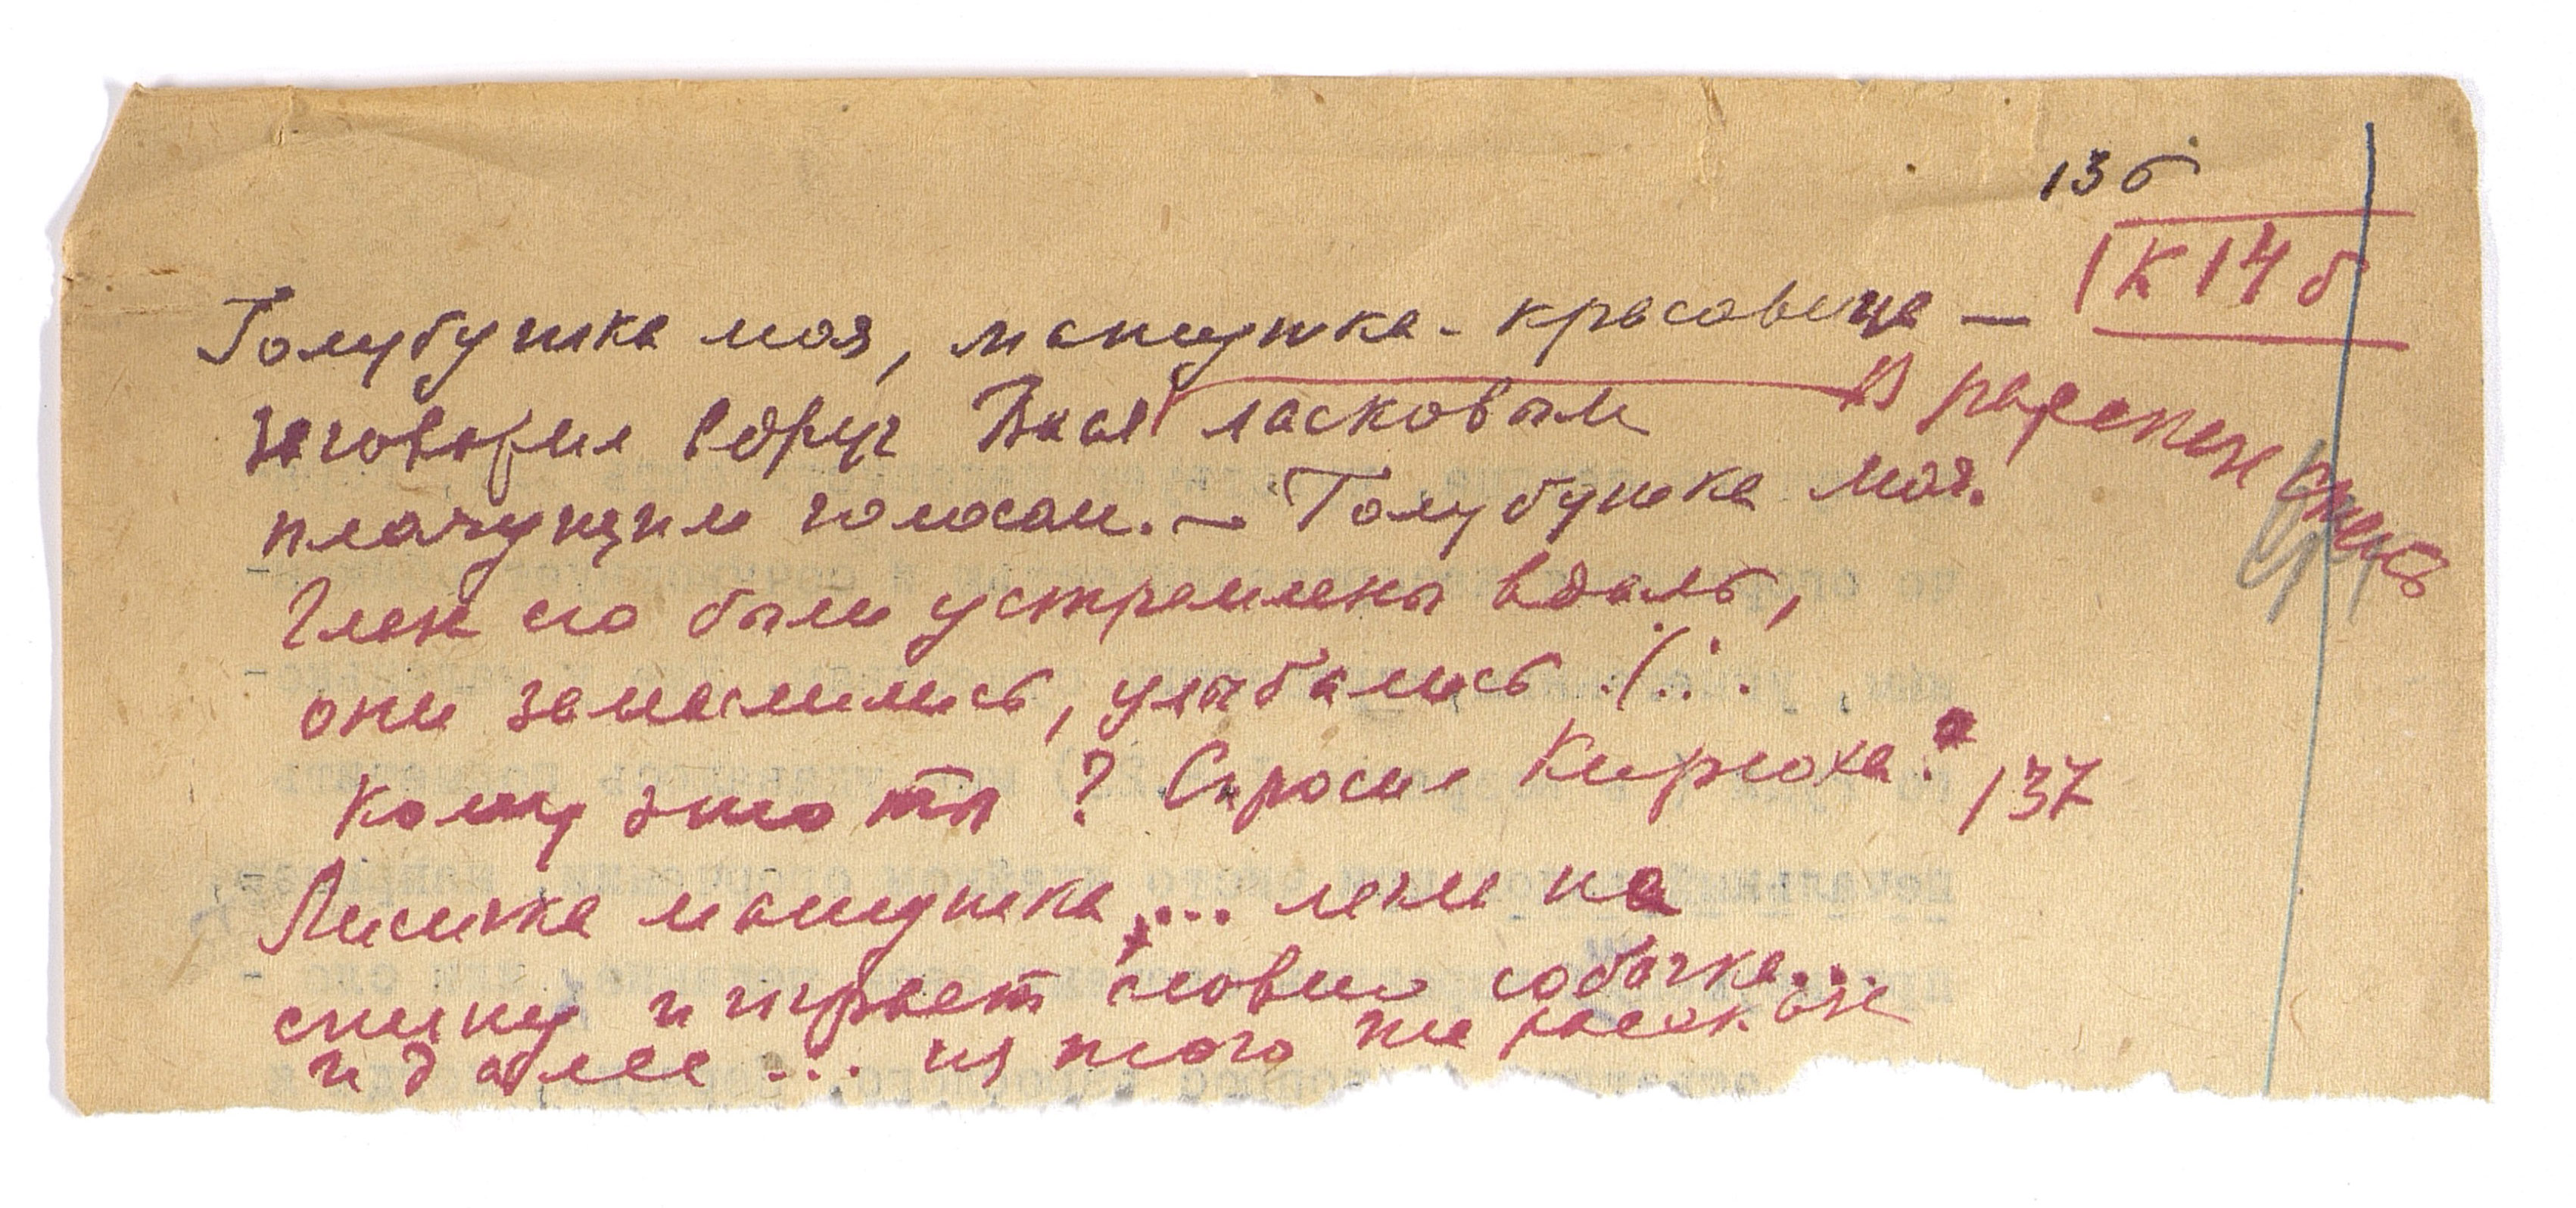 13б
К 14 б
Голубушка моя, матушка-красавица —
заговорил вдруг Вася ласковым
плачущим голосом. — Голубушка моя.
Глаза его были устремлены вдаль,
они замаслились, улыбались . . .
Кому это ты? Спросил Кирюха.
137
Лисичка матушка, ... легла на
спину и играет словно собачка...
и далее ... из того же рассказа